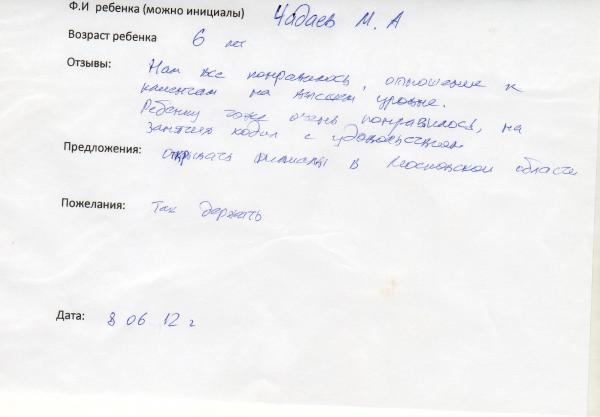 Ф.И ребенка (можно инициалы) Чадаев М. А
Возраст ребенка 6 лет
Отзывы: Нам все понравилось, отношение к
клиентам на высоком уровне.
Ребенку тоже очень понравилось, на
занятия ходил с удовольствием
Предложения: открывать филиалы в Московской области
Пожелания: Так держать
Дата: 8 06 12 г